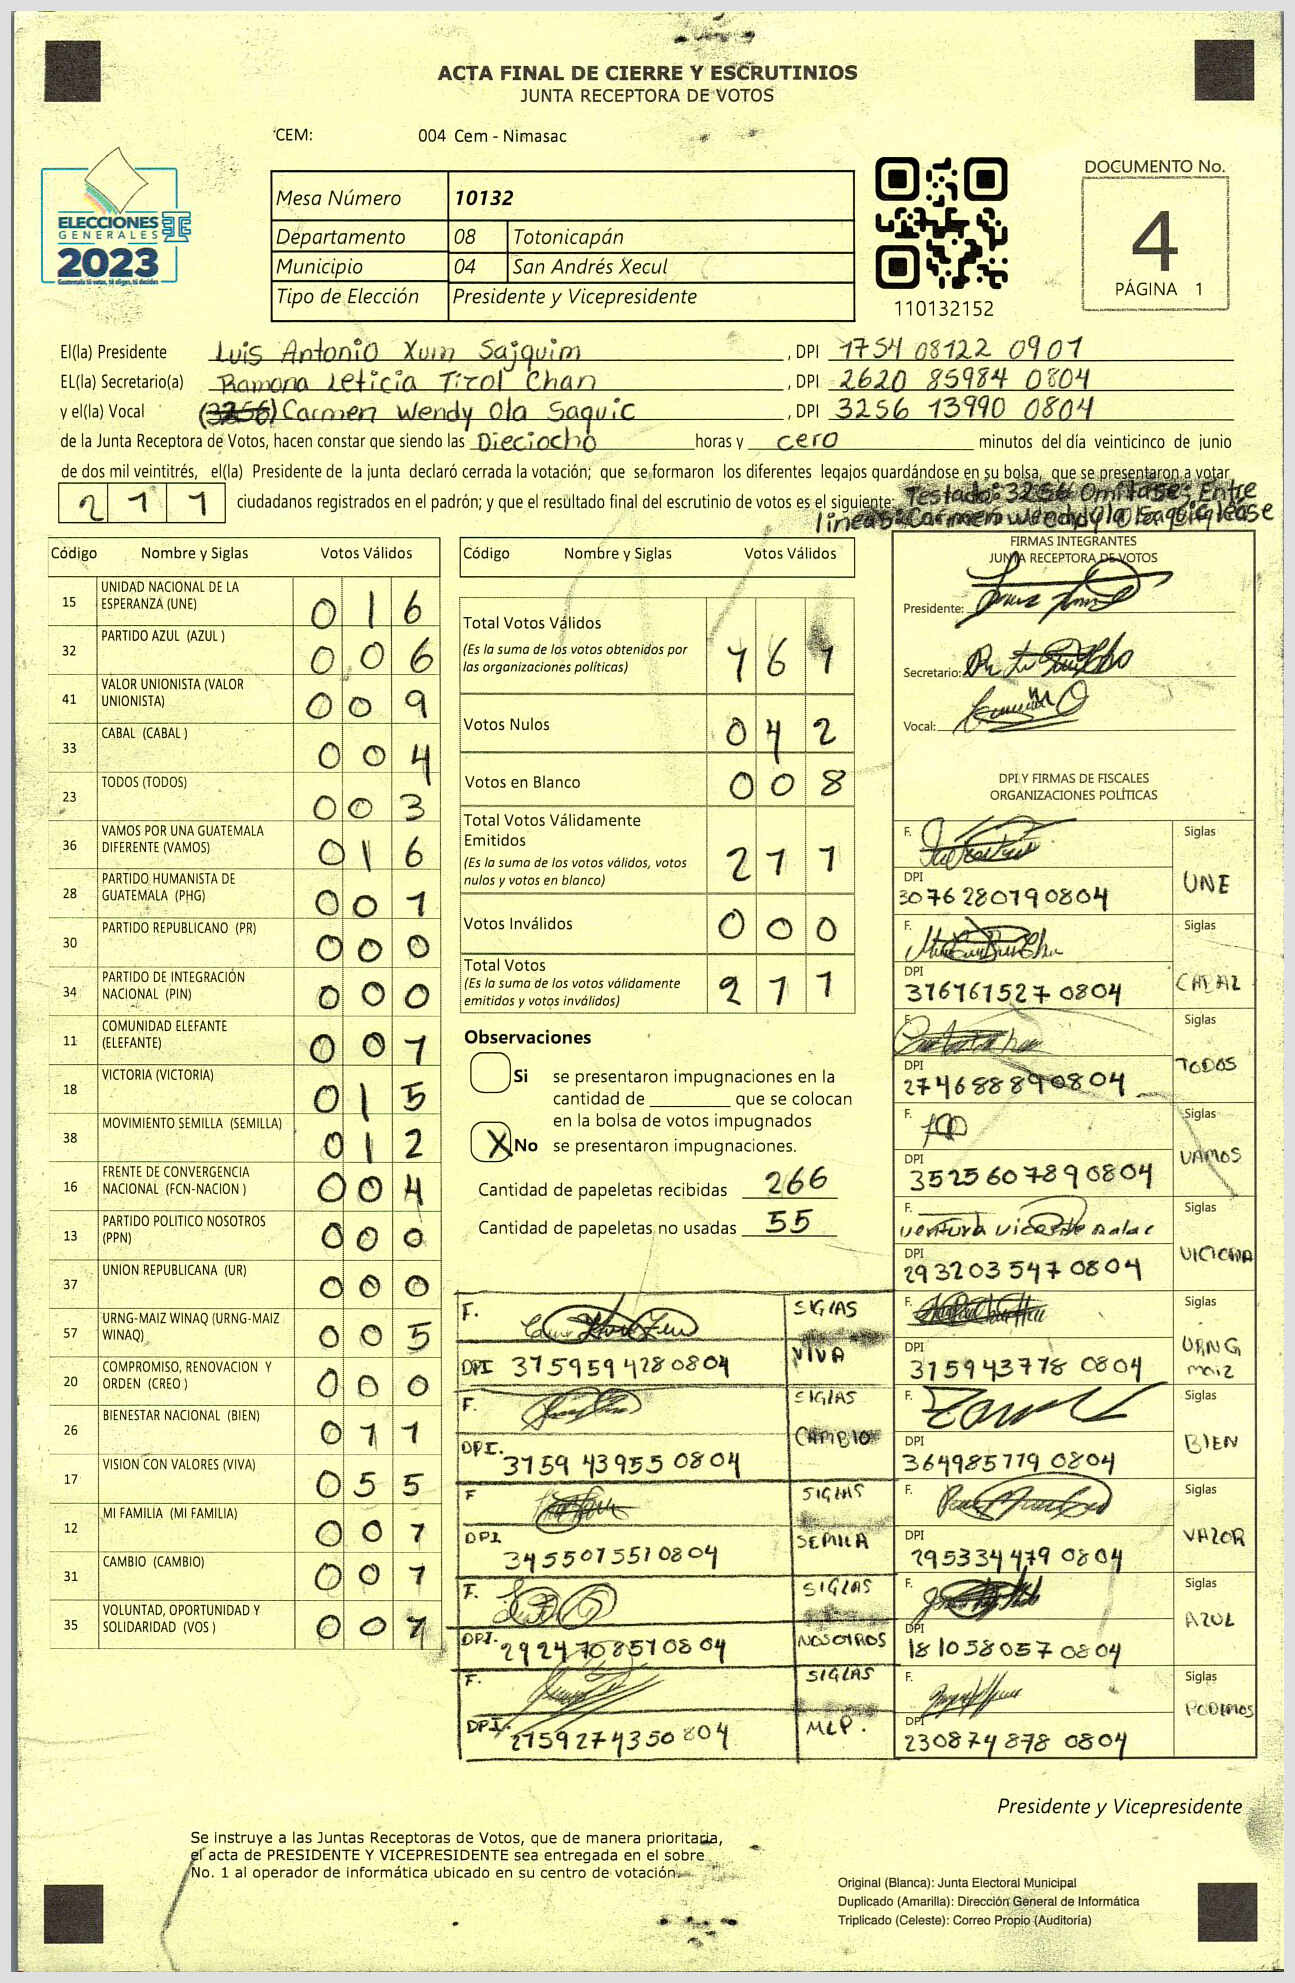 ACTA FINAL DE CIERRE Y ESCRUTINIOS
JUNTA RECEPTORA DE VOTOS
CEM: 004 Cem - Nimasac
ELECCIONES
GENERALES
2023
Guatemala tú votas, tú eliges, tú decides
Mesa Número 10132
Departamento 08 Totonicapán
Municipio 04 San Andrés Xecul
Tipo de Elección Presidente y Vicepresidente
110132152
DOCUMENTO No.
4
PÁGINA 1
El(la) Presidente Luis Antonio Xum Sajquim, DPI 1754 08122 0901
EL(la) Secretario(a) Ramona Leticia Tizol Chan, DPI 2620 85984 0804
y el(la) Vocal (3256) Carmen Wendy Ola Saquic, DPI 3256 13990 0804
de la Junta Receptora de Votos, hacen constar que siendo las Dieciocho horas y cero minutos del día veinticinco de junio
de dos mil veintitrés, el(la) Presidente de la junta declaró cerrada la votación; que se formaron los diferentes legajos quardándose en su bolsa, que se presentaron a votar
211 ciudadanos registrados en el padrón; y que el resultado final del escrutinio de votos es el siguiente: Testado: 3256 Omitase; Entre
lineas: Carmen Wendy Ola Saquic lease
Código Nombre y Siglas Votos Válidos
15 UNIDAD NACIONAL DE LA ESPERANZA (UNE) 016
32 PARTIDO AZUL (AZUL ) 006
41 VALOR UNIONISTA (VALOR UNIONISTA) 009
33 CABAL (CABAL ) 004
23 TODOS (TODOS) 003
36 VAMOS POR UNA GUATEMALA DIFERENTE (VAMOS) 016
28 PARTIDO HUMANISTA DE GUATEMALA (PHG) 001
30 PARTIDO REPUBLICANO (PR) 000
34 PARTIDO DE INTEGRACIÓN NACIONAL (PIN) 000
11 COMUNIDAD ELEFANTE (ELEFANTE) 001
18 VICTORIA (VICTORIA) 015
38 MOVIMIENTO SEMILLA (SEMILLA) 012
16 FRENTE DE CONVERGENCIA NACIONAL (FCN-NACION ) 004
13 PARTIDO POLITICO NOSOTROS (PPN) 000
37 UNION REPUBLICANA (UR) 000
57 URNG-MAIZ WINAQ (URNG-MAIZ WINAQ) 005
20 COMPROMISO, RENOVACION Y ORDEN (CREO ) 000
26 BIENESTAR NACIONAL (BIEN) 011
17 VISION CON VALORES (VIVA) 055
12 MI FAMILIA (MI FAMILIA) 001
31 CAMBIO (CAMBIO) 001
35 VOLUNTAD, OPORTUNIDAD Y SOLIDARIDAD (VOS ) 001
Código Nombre y Siglas Votos Válidos
Total Votos Válidos 161
(Es la suma de los votos obtenidos por
las organizaciones políticas)
Votos Nulos 042
Votos en Blanco 008
Total Votos Válidamente
Emitidos 211
(Es la suma de los votos válidos, votos
nulos y votos en blanco)
Votos Inválidos 000
Total Votos 211
(Es la suma de los votos válidamente
emitidos y votos inválidos)
Observaciones
Si se presentaron impugnaciones en la
cantidad de ________ que se colocan
en la bolsa de votos impugnados
X No se presentaron impugnaciones.
Cantidad de papeletas recibidas 266
Cantidad de papeletas no usadas 55
F. SIGLAS
DPI 3759594280804 VIVA
F. SIGLAS
DPI. 3759 43955 0804 CAMBIO
F SIGLAS
DPI 3455015510804 SEMILA
F. SIGLAS
DPI. 2924708510804 NOSOTROS
F. SIGLAS
DPI. 2759274350804 MLP.
FIRMAS INTEGRANTES
JUNTA RECEPTORA DE VOTOS
Presidente:
Secretario:
Vocal:
DPI Y FIRMAS DE FISCALES
ORGANIZACIONES POLÍTICAS
F. Siglas
DPI UNE
3076280190804
F. Siglas
DPI CABAL
3767615270804
F. Siglas
DPI TODOS
2746888900804
F. Siglas
DPI VAMOS
3525607890804
F. ventura vicente Siglas
DPI VICTORIA
2932035470804
F. Siglas
DPI URNG maiz
315943778 0804
F. Siglas
DPI BIEN
364985779 0804
F. Siglas
DPI VALOR
295334479 0804
F. Siglas
DPI AZUL
181058057 0804
F. Siglas
DPI PODEMOS
230874878 0804
Presidente y Vicepresidente
Se instruye a las Juntas Receptoras de Votos, que de manera prioritaria,
el acta de PRESIDENTE Y VICEPRESIDENTE sea entregada en el sobre
No. 1 al operador de informática ubicado en su centro de votación.
Original (Blanca): Junta Electoral Municipal
Duplicado (Amarilla): Dirección General de Informática
Triplicado (Celeste): Correo Propio (Auditoría)